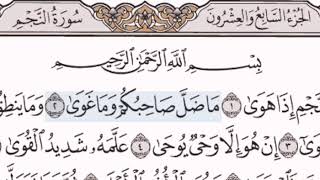 الجزء السابع والعشرون سورة النجم
بِسْمِ اللَّهِ الرَّحْمَٰنِ الرَّحِيمِ
نَّجْمِ إِذَا هَوَىٰ ١ مَا ضَلَّ صَاحِبُكُمْ وَمَا غَوَىٰ ٢ وَمَا يَنطِقُ
وَىٰٓ ٣ إِنْ هُوَ إِلَّا وَحْىٌ يُوحَىٰ ٤ عَلَّمَهُۥ شَدِيدُ ٱلْقُوَىٰ